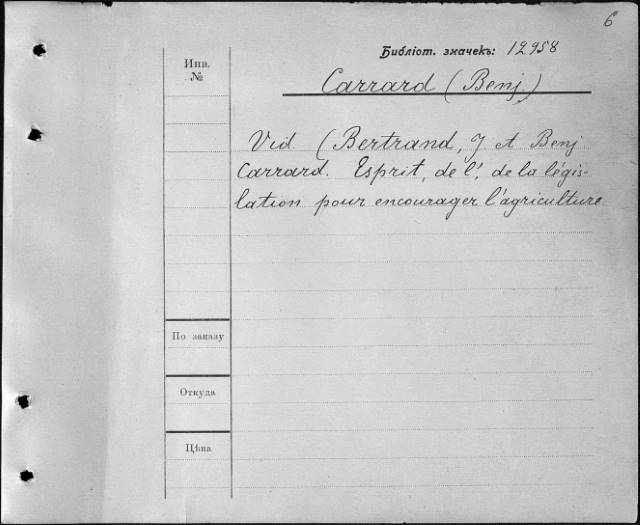 6
Библіот. значекъ: 12958
Инв.
№
Carrard (Benj.)
Vid (Bertrand, J et Benj
Carrard. Esprit, de l', de la légis-
lation pour encourager l'agriculture
По заказу
Откуда
Цѣна